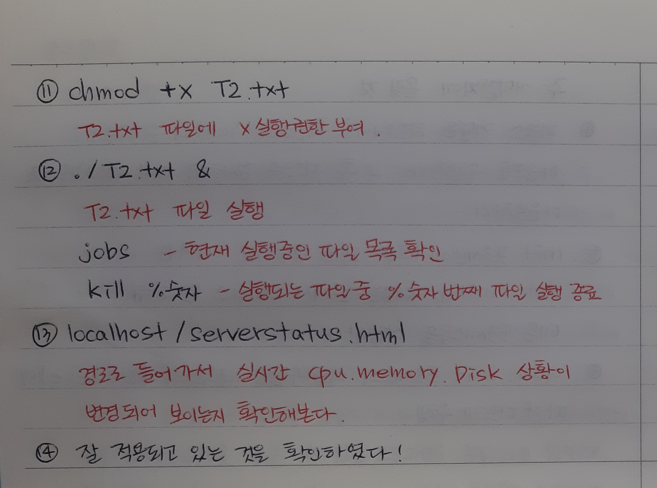 ⑪ chmod +x T2.txt
T2.txt 파일에 x 실행권한 부여.
⑫ ./T2.txt &
T2.txt 파일 실행
jobs - 현재 실행중인 파일 목록 확인
kill %숫자 - 실행되는 파일 중 %숫자 번째 파일 실행 종료
⑬ localhost/serverstatus.html
경로로 들어가서 실시간 cpu.memory.Disk 상황이
변경되어 보이는지 확인해본다.
⑭ 잘 적용되고 있는 것을 확인하였다!